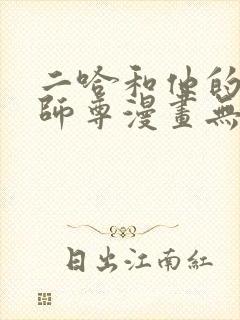 二哈和他的
師尊漫畫無
日出江南紅